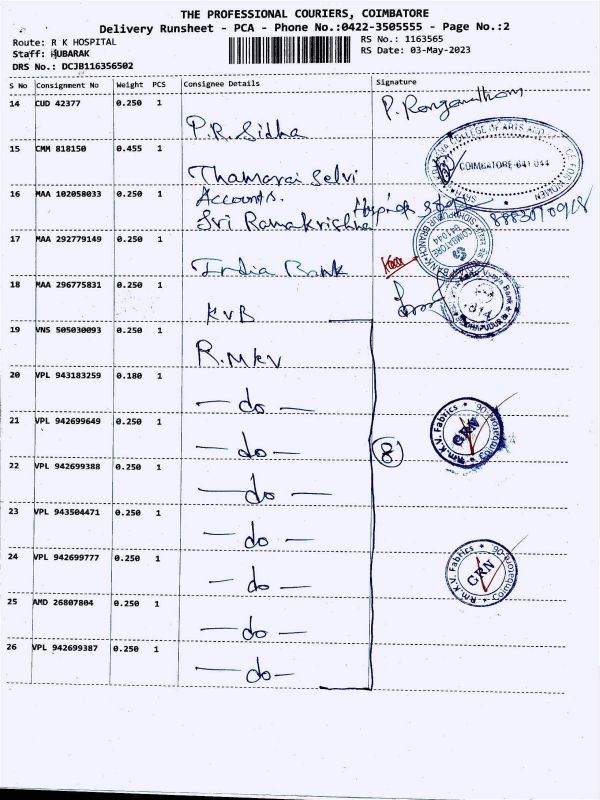 THE PROFESSIONAL COURIERS, COIMBATORE
Delivery Runsheet - PCA - Phone No.:0422-3505555 - Page No.:2
Route: R K HOSPITAL
RS No.: 1163565
Staff: MUBARAK
RS Date: 03-May-2023
DRS No.: DCJB116356502
S No Consignment No Weight PCS Consignee Details Signature
14 CUD 42377 0.250 1 P. Ranganatham
P.R. Sidha
15 CMM 818150 0.455 1
COIMBATORE-641 044
Thamarai Selvi
16 MAA 102058033 0.250 1 Accounts.
Sri Ramakrishna
17 MAA 292779149 0.250 1
India Bank
18 MAA 296775831 0.250 1
KVB
19 VNS 505030093 0.250 1
R.MKV
20 VPL 943183259 0.180 1
— do —
21 VPL 942699649 0.250 1
— do —
8
Rm.K.V. Fabrics * Coimbatore-06 *
GRN
22 VPL 942699388 0.250 1
— do —
23 VPL 943504471 0.250 1
— do —
24 VPL 942699777 0.250 1
— do —
Rm.K.V. Fabrics * Coimbatore-06 *
GRN
25 AMD 26807804 0.250 1
— do —
26 VPL 942699387 0.250 1
— do —